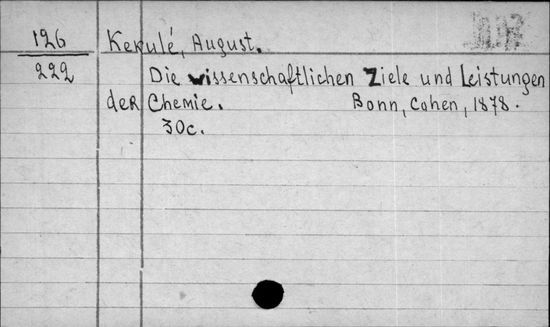 126 Kekulé, August.
222 Die wissenschaftlichen Ziele und Leistungen
der Chemie. Bonn, Cohen, 1878.
30c.